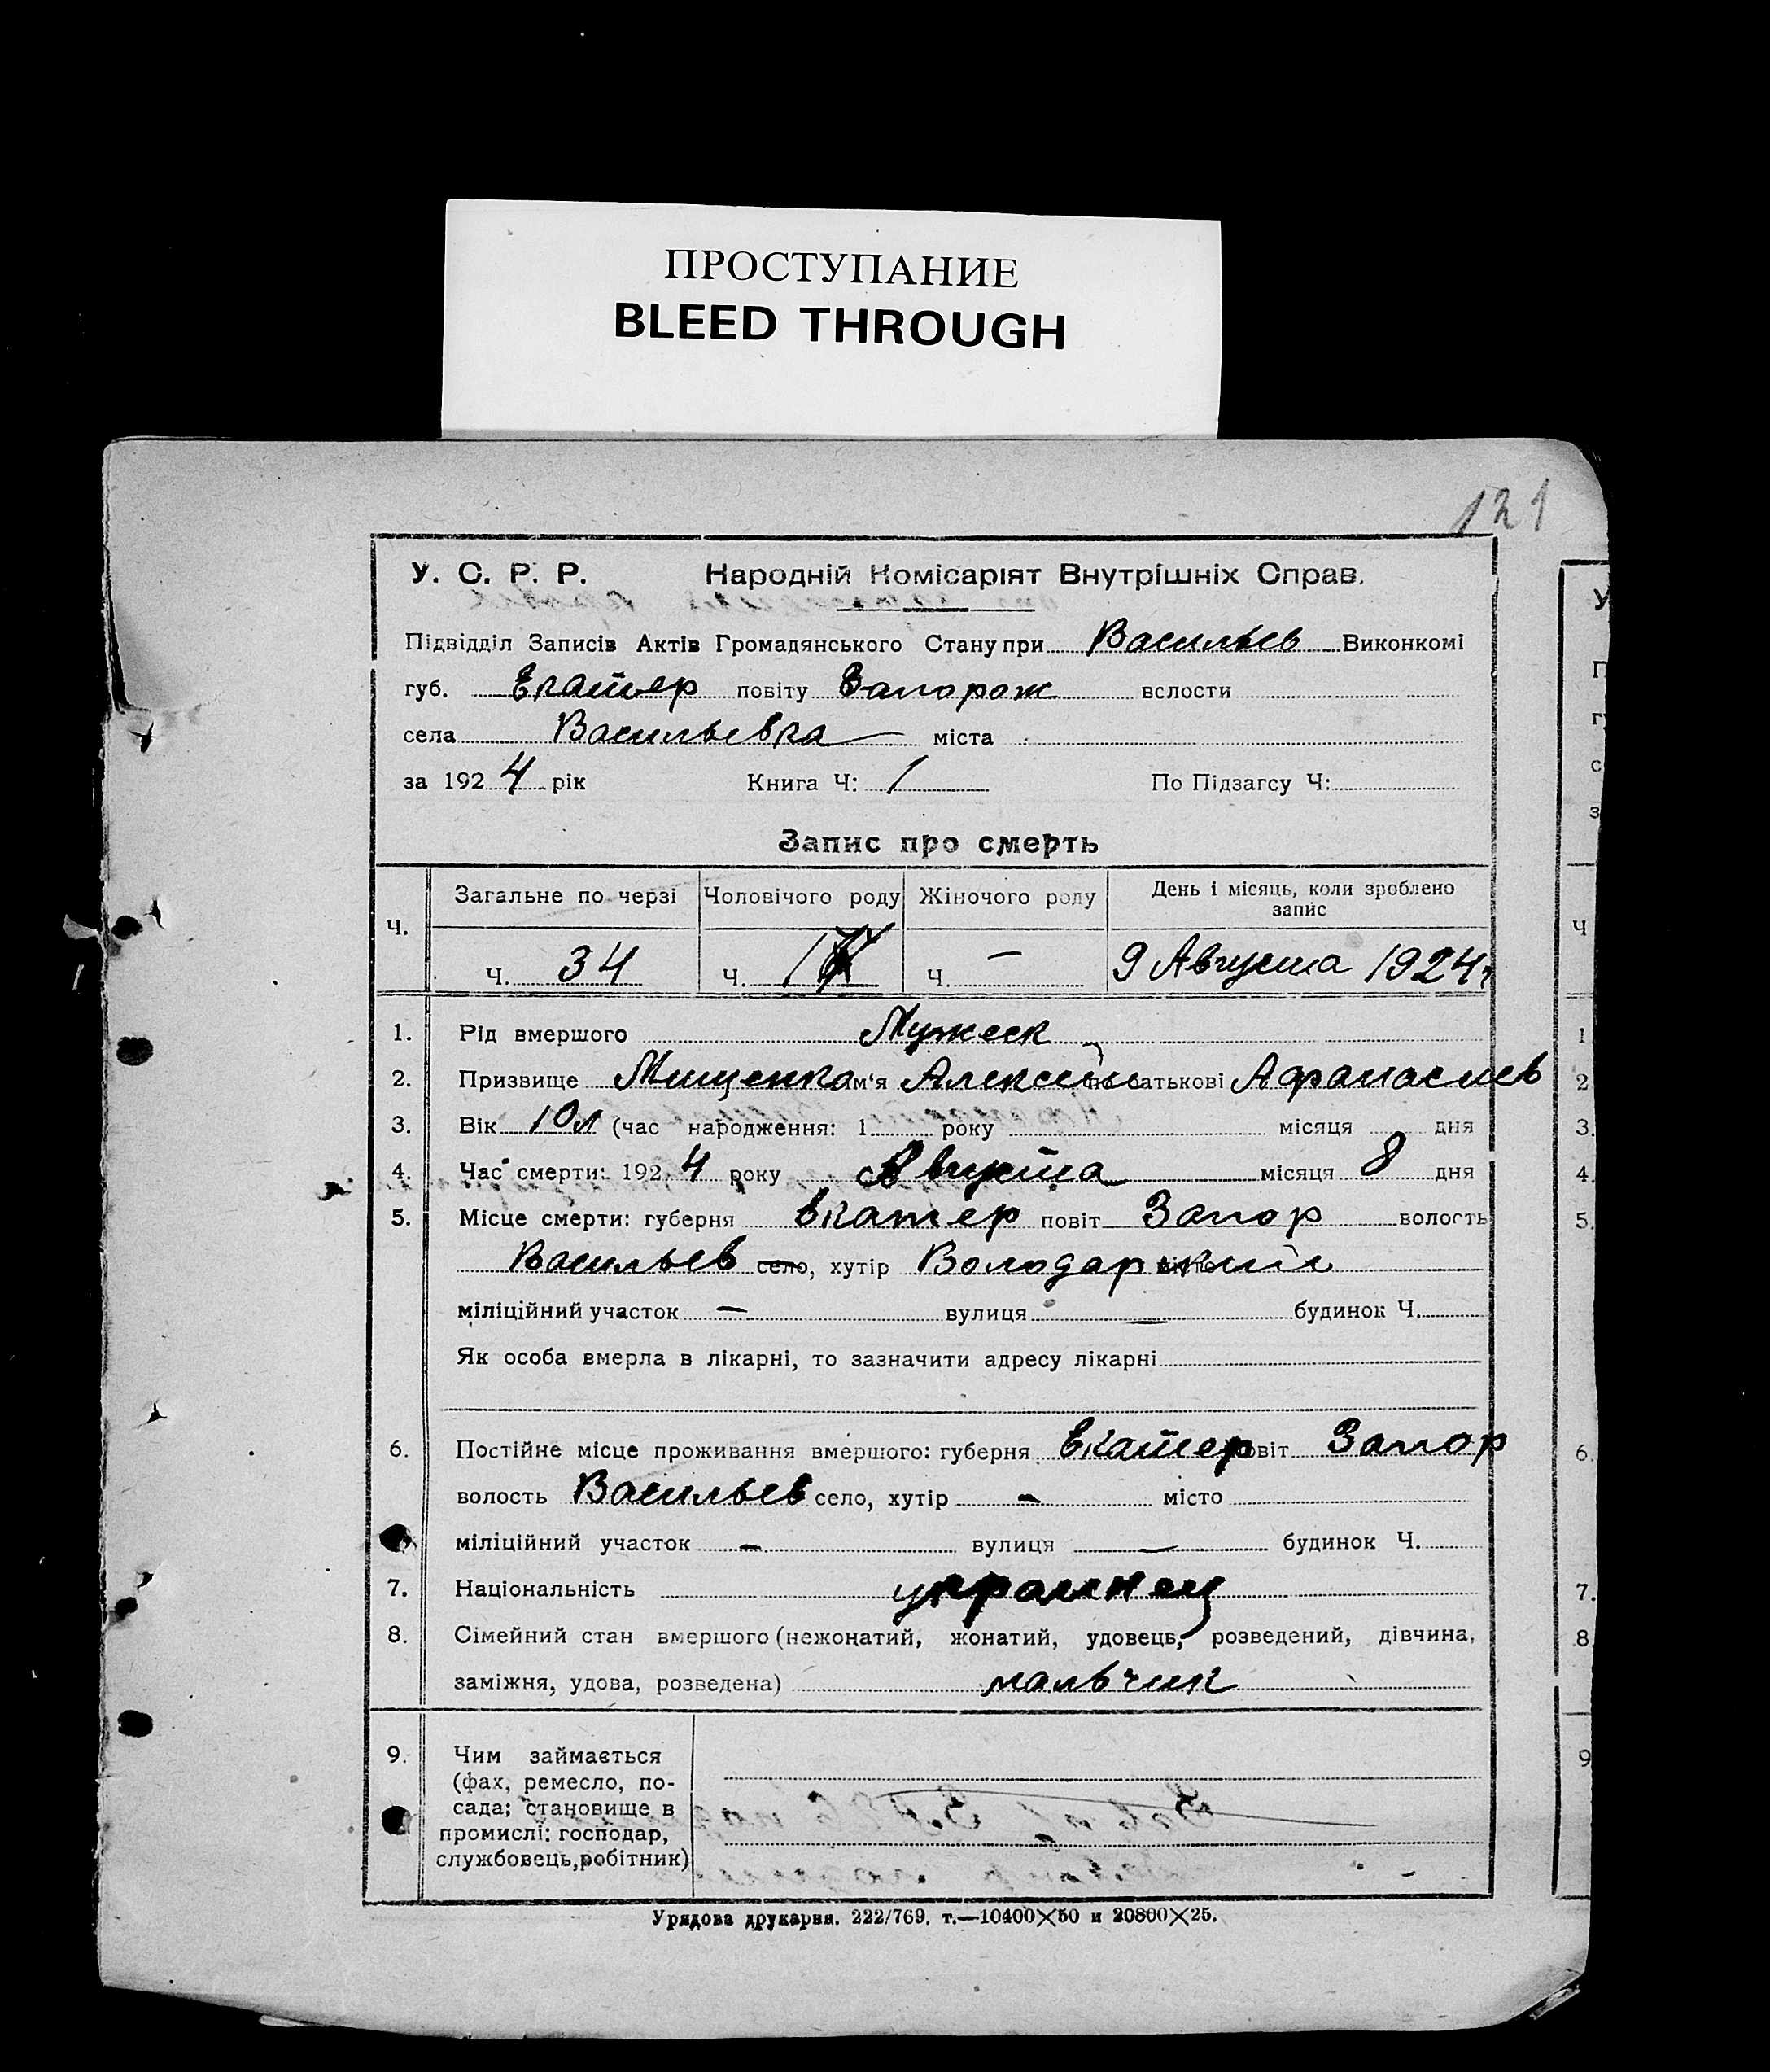 ПРОСТУПАНИЕ
BLEED THROUGH
121
У. С. Р. Р. Народній Комісаріят Внутрішніх Справ.
Підвідділ Записів Актів Громадянського Стану при Васильев Виконкомі
губ. Екатер повіту Запорож вслости
села Васильевка міста
за 1924 рік Книга Ч: 1 По Підзагсу Ч:
Запис про смерть
Ч. Загальне по черзі Чоловічого роду Жіночого роду День і місяць, коли зроблено запис
Ч. 34 Ч. Ч. — 9 Августа 1924 г
1. Рід вмершого Мужеск
2. Призвище Мищенко Ім'я Алексей по батькові Афанасиев
3. Вік 10 л (час народження: 1 року місяця дня
4. Час смерти: 1924 року Августа місяця 8 дня
5. Місце смерти: губерня Екатер повіт Запор волость
Васильев село, хутір Володарский
міліційний участок — вулиця — будинок Ч.
Як особа вмерла в лікарні, то зазначити адресу лікарні
6. Постійне місце проживання вмершого: губерня Екатер повіт Запор
волость Васильев село, хутір - місто
міліційний участок - вулиця — будинок Ч.
7. Національність украинец
8. Сімейний стан вмершого (нежонатий, жонатий, удовець, розведений, дівчина,
заміжня, удова, розведена) мальчик
9. Чим займається
(фах, ремесло, по-
сада; становище в
промислі: господар,
службовець, робітник)
Урядова друкарня. 222/769. т.—10400×50 и 20800×25.